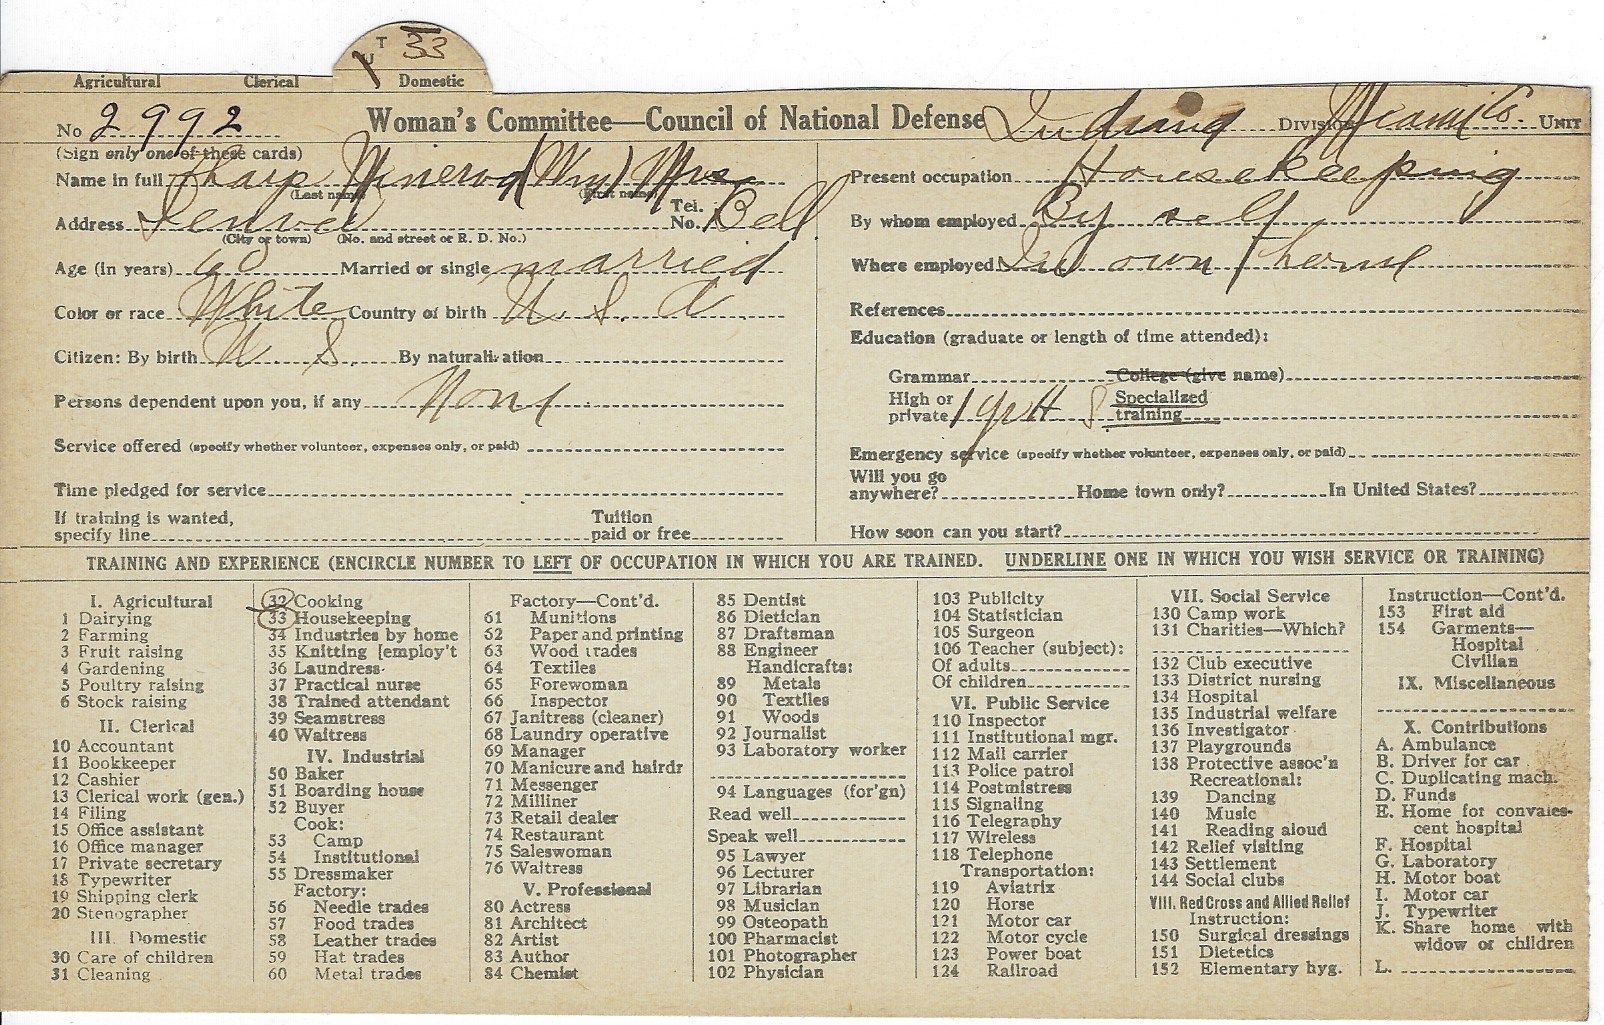 T 33
U
Agricultural Clerical Domestic
No 2992 Woman's Committee—Council of National Defense Indiana DIVISION Miami Co. UNIT
(Sign only one of these cards)
Name in full Sharp Minerva (Wm) Mrs
(Last name) (First name)
Address Denver Tel. No. Bell
(City or town) (No. and street or R. D. No.)
Age (in years) 60 Married or single married
Color or race White Country of birth U. S. A
Citizen: By birth U S. By naturalization
Persons dependent upon you, if any None
Service offered (specify whether volunteer, expenses only, or paid)
Time pledged for service
If training is wanted,
specify line Tuition paid or free
Present occupation Housekeeping
By whom employed By self
Where employed In own home
References
Education (graduate or length of time attended):
Grammar College (give name)
High or private 1 yr H S Specialized training
Emergency service (specify whether volunteer, expenses only, or paid)
Will you go anywhere? Home town only? In United States?
How soon can you start?
TRAINING AND EXPERIENCE (ENCIRCLE NUMBER TO LEFT OF OCCUPATION IN WHICH YOU ARE TRAINED. UNDERLINE ONE IN WHICH YOU WISH SERVICE OR TRAINING)
I. Agricultural
1 Dairying
2 Farming
3 Fruit raising
4 Gardening
5 Poultry raising
6 Stock raising
II. Clerical
10 Accountant
11 Bookkeeper
12 Cashier
13 Clerical work (gen.)
14 Filing
15 Office assistant
16 Office manager
17 Private secretary
18 Typewriter
19 Shipping clerk
20 Stenographer
III. Domestic
30 Care of children
31 Cleaning
32 Cooking
33 Housekeeping
34 Industries by home
35 Knitting [employ't
36 Laundress
37 Practical nurse
38 Trained attendant
39 Seamstress
40 Waitress
IV. Industrial
50 Baker
51 Boarding house
52 Buyer
Cook:
53 Camp
54 Institutional
55 Dressmaker
Factory:
56 Needle trades
57 Food trades
58 Leather trades
59 Hat trades
60 Metal trades
Factory—Cont'd.
61 Munitions
62 Paper and printing
63 Wood trades
64 Textiles
65 Forewoman
66 Inspector
67 Janitress (cleaner)
68 Laundry operative
69 Manager
70 Manicure and hairdr
71 Messenger
72 Milliner
73 Retail dealer
74 Restaurant
75 Saleswoman
76 Waitress
V. Professional
80 Actress
81 Architect
82 Artist
83 Author
84 Chemist
85 Dentist
86 Dietician
87 Draftsman
88 Engineer
Handicrafts:
89 Metals
90 Textiles
91 Woods
92 Journalist
93 Laboratory worker
94 Languages (for'gn)
Read well
Speak well
95 Lawyer
96 Lecturer
97 Librarian
98 Musician
99 Osteopath
100 Pharmacist
101 Photographer
102 Physician
103 Publicity
104 Statistician
105 Surgeon
106 Teacher (subject):
Of adults
Of children
VI. Public Service
110 Inspector
111 Institutional mgr.
112 Mail carrier
113 Police patrol
114 Postmistress
115 Signaling
116 Telegraphy
117 Wireless
118 Telephone
Transportation:
119 Aviatrix
120 Horse
121 Motor car
122 Motor cycle
123 Power boat
124 Railroad
VII. Social Service
130 Camp work
131 Charities—Which?
132 Club executive
133 District nursing
134 Hospital
135 Industrial welfare
136 Investigator
137 Playgrounds
138 Protective assoc'n
Recreational:
139 Dancing
140 Music
141 Reading aloud
142 Relief visiting
143 Settlement
144 Social clubs
VIII. Red Cross and Allied Relief
Instruction:
150 Surgical dressings
151 Dietetics
152 Elementary hyg.
Instruction—Cont'd.
153 First aid
154 Garments—
Hospital
Civilian
IX. Miscellaneous
X. Contributions
A. Ambulance
B. Driver for car
C. Duplicating mach.
D. Funds
E. Home for convales-
cent hospital
F. Hospital
G. Laboratory
H. Motor boat
I. Motor car
J. Typewriter
K. Share home with
widow or children
L.